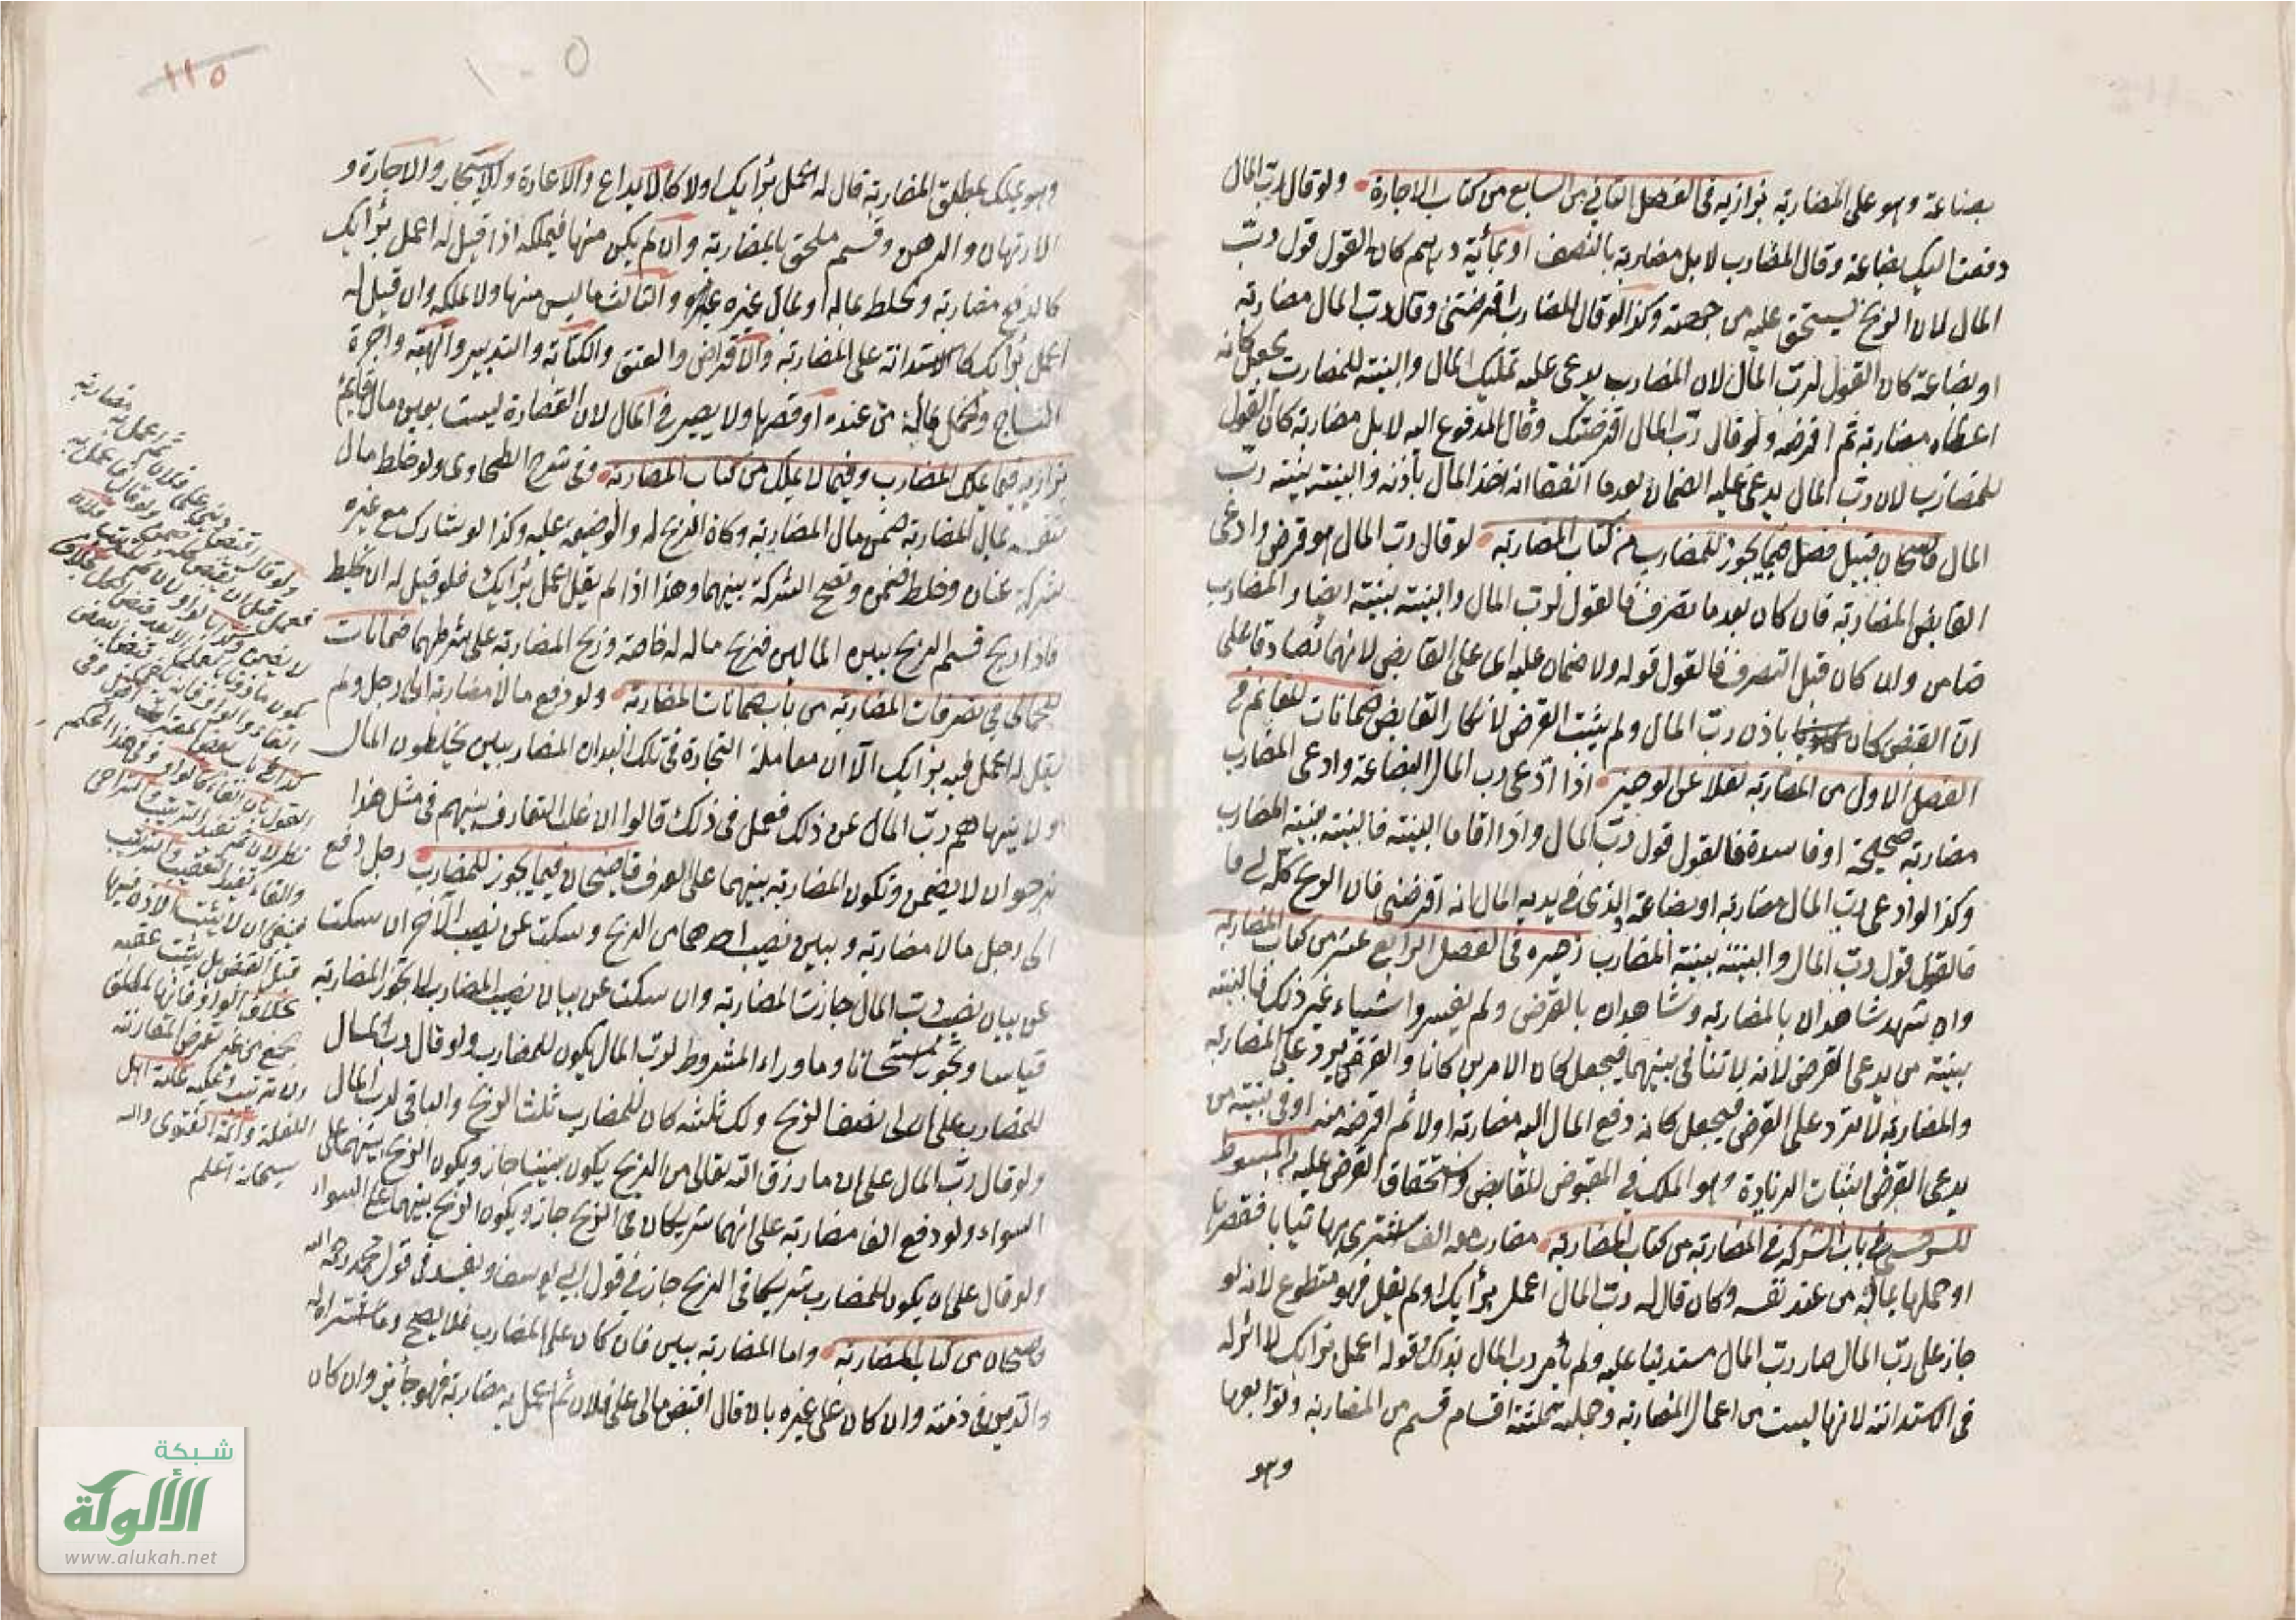 بضاعة وهو على المضاربة بزازيه فى الفصل الثانى من السابع من كتاب الاجارة ولو قال رب المال
دفعت اليك بضاعة وقال المضارب لا بل مضاربة بالنصف او بمائة درهم كان القول قول رب
المال لان الربح يستحق عليه من جهته وكذا لو قال المضارب اقرضتنى وقال رب المال مضاربة
او بضاعة كان القول لرب المال لان المضارب يدعى عليه تمليك المال والبينة للمضارب يجعل كانه
اعطاه مضاربة ثم اقرضه ولو قال رب المال اقرضتك وقال المدفوع اليه لا بل مضاربة كان القول
للمضارب لان رب المال يدعى عليه الضمان بعدما اتفقا انه اخذ المال باذنه والبينة بينة رب
المال قاضيخان قبيل فصل فيما يجوز للمضارب من كتاب المضاربة لو قال رب المال هو قرض وادعى
القابض المضاربة فان كان بعد ما تصرف فالقول لرب المال والبينة بينته ايضا والمضارب
ضامن وان كان قبل التصرف فالقول قوله ولا ضمان عليه اى على القابض لانهما تصادقا على
ان القبض كان باذن رب المال ولم يثبت القرض لانكار القابض ضمانات للغانم فى
الفصل الاول من المضاربة نقلا عن الوجيز اذا ادعى رب المال البضاعة وادعى المضارب
مضاربة صحيحة او فاسدة فالقول قول رب المال واذا اقاما البينة فالبينة بينة المضارب
وكذا لو ادعى رب المال مضاربة او بضاعة والذى فى يديه المال انه اقرضنى فان الربح كله لى
فالقول قول رب المال والبينة بينة المضارب ذخيره فى الفصل الرابع عشر من كتاب المضاربه
وان شهد شاهدان بالمضاربه وشاهدان بالقرض ولم يفسروا شيئا غير ذلك فالبينة
بينة من يدعى القرض لانه لا تنافى بينهما فيجعل كان الامرين كانا والقرض يرد على المضاربه
والمضاربه لا ترد على القرض فيجعل كانه دفع المال اليه مضاربة اولا ثم اقرضه منه او فى بينة من
يدعى القرض اثبات الزيادة وهو الملك فى المقبوض للقابض واستحقاق القرض عليه من المبسوط
للسرخسى فى باب الشركه فى المضاربه من كتاب المضاربه مضارب معه الف اشترى بها ثيابا فقصرها
او حملها بمائة من عند نفسه وكان قال له رب المال اعمل برأيك او لم يقل فهو متطوع لانه لو
جاز على رب المال صار رب المال مستدينا عليه ولم يأمر رب المال بذلك وقوله اعمل برأيك لا اثر له
فى الاستدانة لانها ليست من اعمال المضاربه وجملته ثلثة اقسام قسم من المضاربه وتوابعها
وهو
١١٥
١٠٥
وهو يملك بمطلق المضاربه قال له اعمل برأيك اولا كالايداع والاعارة والاستئجار والاجارة و
الارتهان والرهن وقسم ملحق بالمضاربه وان لم يكن منها فيملكه اذا قيل له اعمل برأيك
كالدفع مضاربة ويخلط بماله او بمال غيره والثالث ما ليس منها ولا يملكه وان قيل له
اعمل برأيك كالاستدانة على المضاربه والاقراض والعتق والكتابة والتدبير والهبة واجرة
النساج والحمل بمائة من عنده او قصرها ولا يصير فى المال لان القصارة ليست بعين مال قائم
بزازيه فيما يملك المضارب وفيما لا يملك من كتاب المضاربه وفى شرح الطحاوى ولو خلط مال
نفسه بمال المضاربة ضمن مال المضاربة وكان الربح له والوضيعه عليه وكذا لو شارك مع غيره
شركة عنان وخلط ضمن وتصح الشركة بينهما وهذا اذا لم يقل اعمل برأيك فلو قيل له ان يخلط
فاذا ربح قسم الربح بين المالين فربح ماله له خاصة وربح المضاربة على شرطهما ضمانات
للجمالى فى تصرفات المضاربه من باب ضمانات المضاربه ولو دفع مالا مضاربة الى رجل ولم
يقل له اعمل فيه برأيك الا ان معاملة التجارة فى تلك البلدان المضاربين يخلطون المال
ولا ينهاهم رب المال عن ذلك فعمل فى ذلك قالوا ان غلب التعارف بينهم فى مثل هذا
نرجو ان لا يضمن وتكون المضاربة بينهما على العرف قاضيخان فيما يجوز للمضارب رجل دفع
الى رجل مالا مضاربة وبين نصيب احدهما من الربح وسكت عن نصيب الآخر ان سكت
عن بيان نصيب رب المال جازت المضاربة وان سكت عن بيان نصيب المضارب لا تجوز المضاربه
قياسا وتجوز استحسانا وما وراء المشروط لرب المال يكون للمضارب ولو قال رب المال
للمضارب على ان لى نصف الربح ولك ثلثه كان للمضارب ثلث الربح والباقى لرب المال
ولو قال رب المال على ان ما رزق الله تعالى من الربح يكون بيننا جاز ويكون الربح بينهما على
السواء ولو دفع الفا مضاربه على انهما شريكان فى الربح جاز ويكون الربح بينهما على السواء
ولو قال على ان يكون للمضارب شريكا فى الربح جاز فى قول ابى يوسف ويفسد فى قول محمد رحمه الله
قاضيخان من كتاب المضاربه واما المضاربه بدين فان كان على المضارب فلا يصح وما اشتراه له
والدين فى ذمته وان كان على غيره بان قال اقبض مالى على فلان ثم اعمل به مضاربة فهو جائز وان كان
ولو قال اقبض دينى على فلان ثم اعمل به مضاربه
بخلاف الواو فانها لمطلق
سبحانه اعلم
شبكة
الألوكة
www.alukah.net